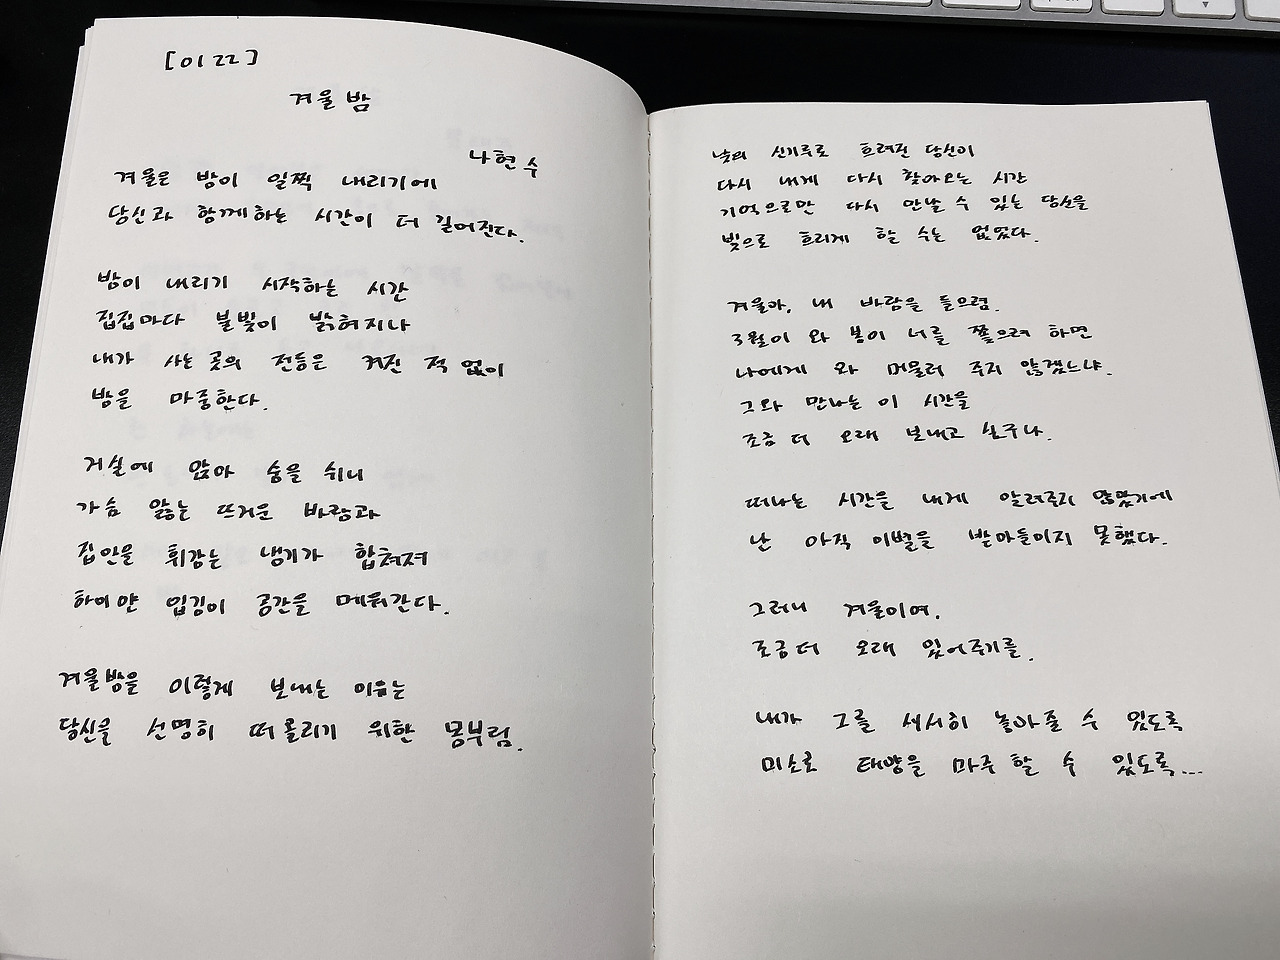 [0122]
겨울 밤
나현수
겨울은 밤이 일찍 내리기에
당신과 함께하는 시간이 더 길어진다.
밤이 내리기 시작하는 시간
집집마다 불빛이 밝혀지나
내가 사는 곳의 전등은 켜진 적 없이
밤을 마중한다.
거실에 앉아 숨을 쉬니
가슴 앓는 뜨거운 바람과
집안을 휘감는 냉기가 합쳐져
하이얀 입김이 공간을 메워간다.
겨울밤을 이렇게 보내는 이유는
당신을 선명히 떠올리기 위한 몽부림.
낮의 신기루로 흐려진 당신이
다시 내게 다시 찾아오는 시간
기억으로만 다시 만날 수 있는 당신을
빛으로 흐리게 할 수는 없었다.
겨울아, 내 바람을 들으렴.
3월이 와 봄이 너를 쫓으려 하면
나에게 와 머물러 주지 않겠느냐.
그와 만나는 이 시간을
조금 더 오래 보내고 싶구나.
떠나는 시간을 내게 알려주지 않았기에
난 아직 이별을 받아들이지 못했다.
그러니 겨울이여,
조금 더 오래 있어주기를.
내가 그를 서서히 놓아줄 수 있도록
미소로 태양을 마주 할 수 있도록...